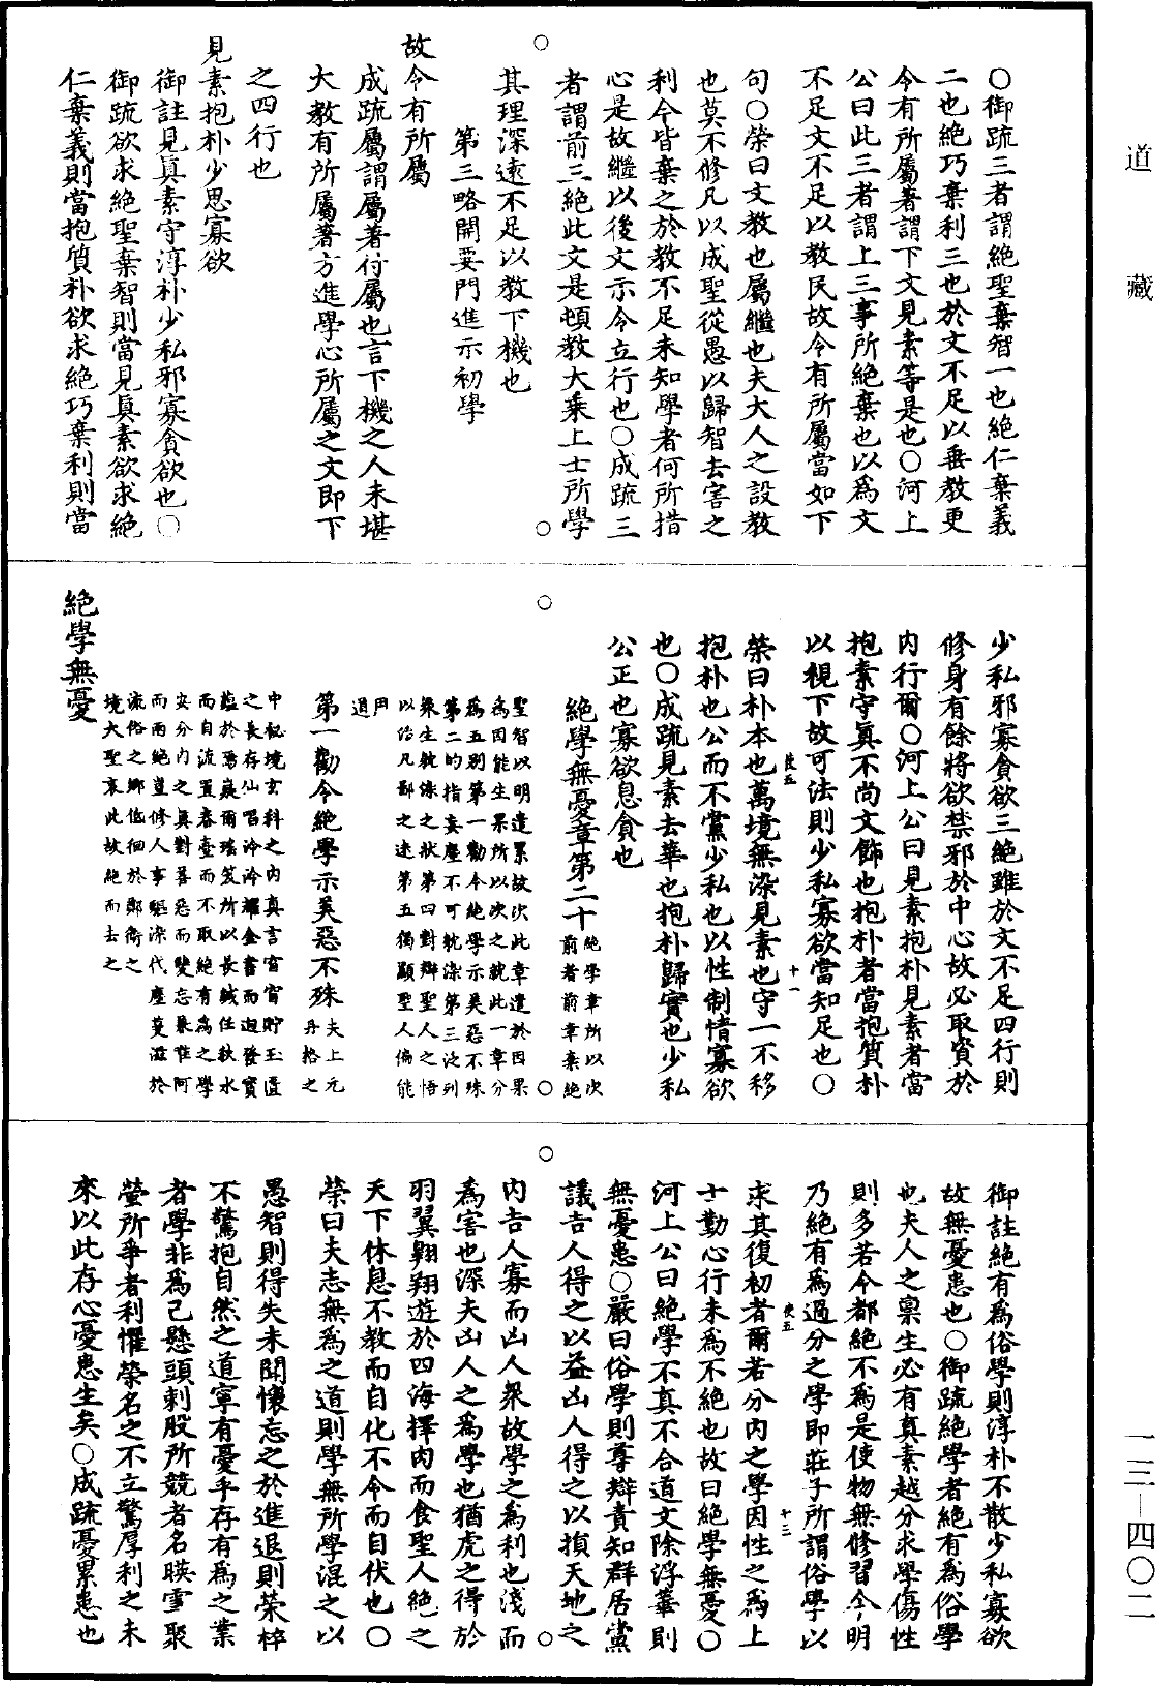 道藏
一三—四〇二
〇御疏三者謂絶聖棄智一也絶仁棄義
二也絶巧棄利三也於文不足以垂教更
令有所屬著謂下文見素等是也〇河上
公曰此三者謂上三事所絶棄也以爲文
不足文不足以教民故令有所屬當如下
句〇榮曰文教也屬繼也夫大人之設教
也莫不修凡以成聖從愚以歸智去害之
利今皆棄之於教不足未知學者何所措
心是故繼以後文示令立行也〇成疏三
者謂前三絶此文是頓教大乘上士所學
其理深遠不足以教下機也
第三略開要門進示初學
故令有所屬
成疏屬謂屬著付屬也言下機之人未堪
大教有所屬著方進學心所屬之文即下
之四行也
見素抱朴少思寡欲
御註見真素守淳朴少私邪寡貪欲也〇
御疏欲求絶聖棄智則當見真素欲求絶
仁棄義則當抱質朴欲求絶巧棄利則當
少私邪寡貪欲三絶雖於文不足四行則
修身有餘將欲禁邪於中心故必取資於
内行爾〇河上公曰見素抱朴見素者當
抱素守真不尚文飾也抱朴者當抱質朴
以視下故可法則少私寡欲當知足也〇
榮曰朴本也萬境無染見素也守一不移
抱朴也公而不黨少私也以性制情寡欲
也〇成疏見素去華也抱朴歸實也少私
公正也寡欲息貪也
絶學無憂章第二十
絶學章所以次
前者前章棄絶
聖智以明遣累故次此章遣於因果
爲因能生果所以次之就此一章分
爲五别第一勸令絶學示美惡不殊
第二的指妄塵不可躭染第三泛列
衆生躭滌之狀第四對辯聖人之悟
以洽凡鄙之迷第五獨顯聖人偏能
同
道
第一勸令絶學示美惡不殊
夫上元
丹格之
中秘境玄科之内真言宵宵貯玉匱
之長存仙唱泠泠耀金書而迥發寶
藴於
而自流置春臺而不取絶有爲之學
安分内之真對善惡而雙忘兼唯阿
而兩絶豈修人事驅染代塵蔓滋於
流俗之鄉低徊於鄭衛之
境大聖哀此故絶而去之
絶學無憂
御註絶有爲俗學則淳朴不散少私寡欲
故無憂患也〇御疏絶學者絶有爲俗學
也夫人之稟生必有真素越分求學傷性
則多若令都絶不爲是使物無修習今明
乃絶有爲過分之學即莊子所謂俗學以
求其復初者爾若分内之學因性之爲上
士勤心行未爲不絶也故曰絶學無憂〇
河上公曰絶學不真不合道文除浮華則
無憂患〇嚴曰俗學則尊辯貴知群居黨
議吉人得之以益凶人得之以損天地之
内吉人寡而凶人衆故學之爲利也淺而
爲害也深夫凶人之爲學也猶虎之得於
羽翼翱翔遊於四海擇肉而食聖人絶之
天下休息不教而自化不令而自伏也〇
榮曰夫志無爲之道則學無所學混之以
愚智則得失未聞懷忘之於進退則榮悴
不驚抱自然之道寧有憂乎存有爲之業
者學非爲己懸頭刺股所競者名映雪聚
螢所爭者利懼榮名之不立驚厚利之未
來以此存心憂患生矣〇成疏憂累患也